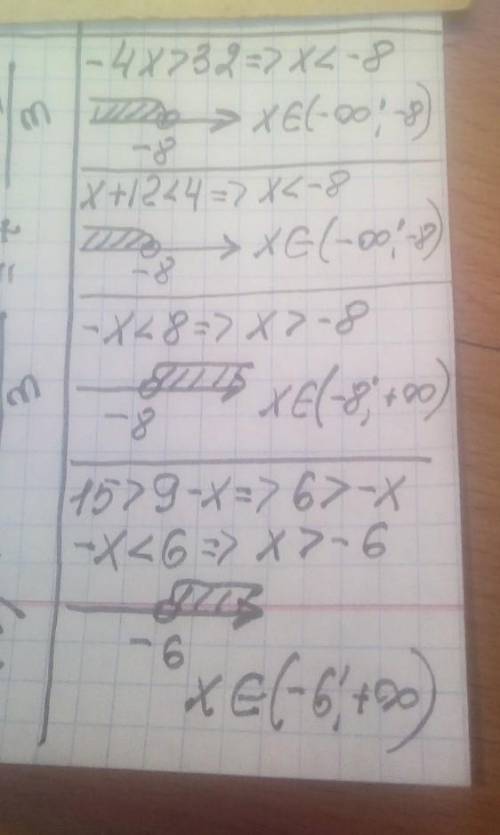 -4x>32=>x<-8
-8
x∈(-∞;-8)
x+12<4=>x<-8
-8
x∈(-∞;-8)
-x<8=>x>-8
-8
x∈(-8;+∞)
15>9-x=>6>-x
-x<6=>x>-6
-6
x∈(-6;+∞)